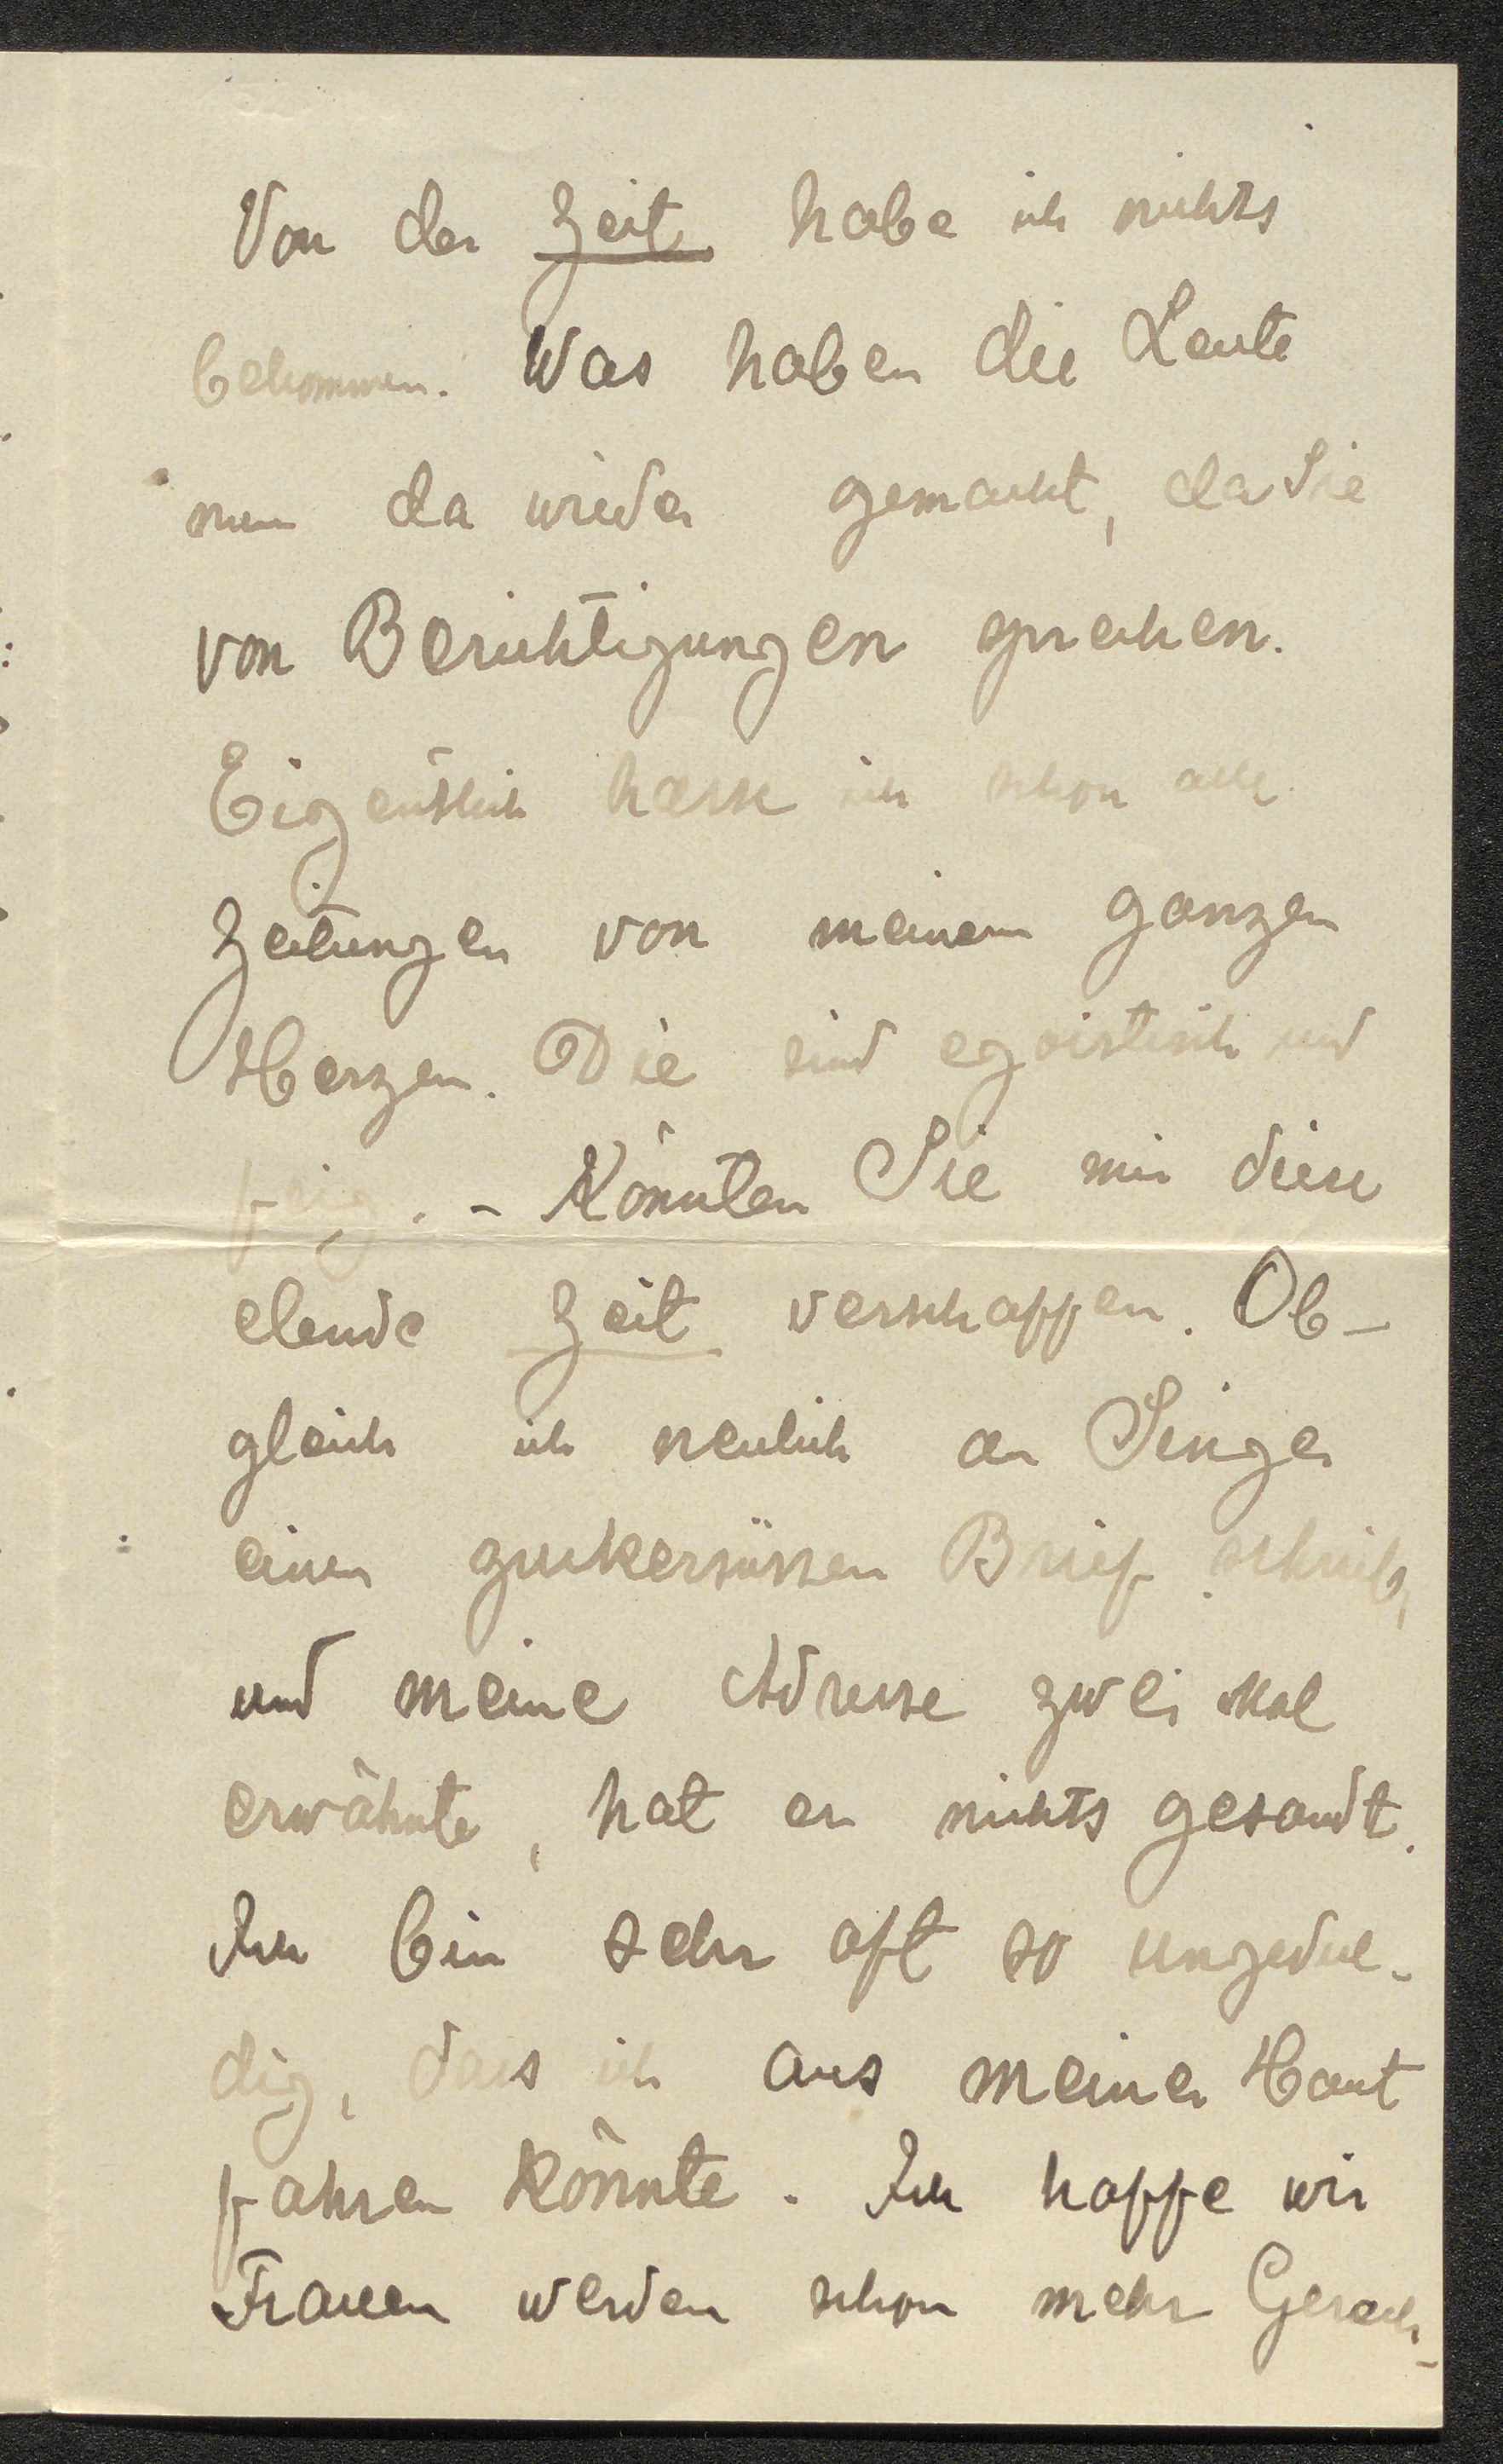 Von der Zeit habe ich nichts
bekommen. Was haben die Leute
nun da wieder gemacht, da Sie
von Berichtigungen sprechen.
Eigentlich hasse ich schon alle
Zeitungen von meinem ganzen
Herzen. Die sind egoistisch und
feig. - Könnten Sie mir diese
elende Zeit verschaffen. Ob-
gleich ich neulich an Singer
einen zuckersüssen Brief schrieb,
und meine Adresse zwei Mal
erwähnte, hat er nichts gesandt.
Ich bin sehr oft so ungedul-
dig, dass ich aus meiner Haut
fahren könnte. Ich hoffe wir
Frauen werden schon mehr Gerech-